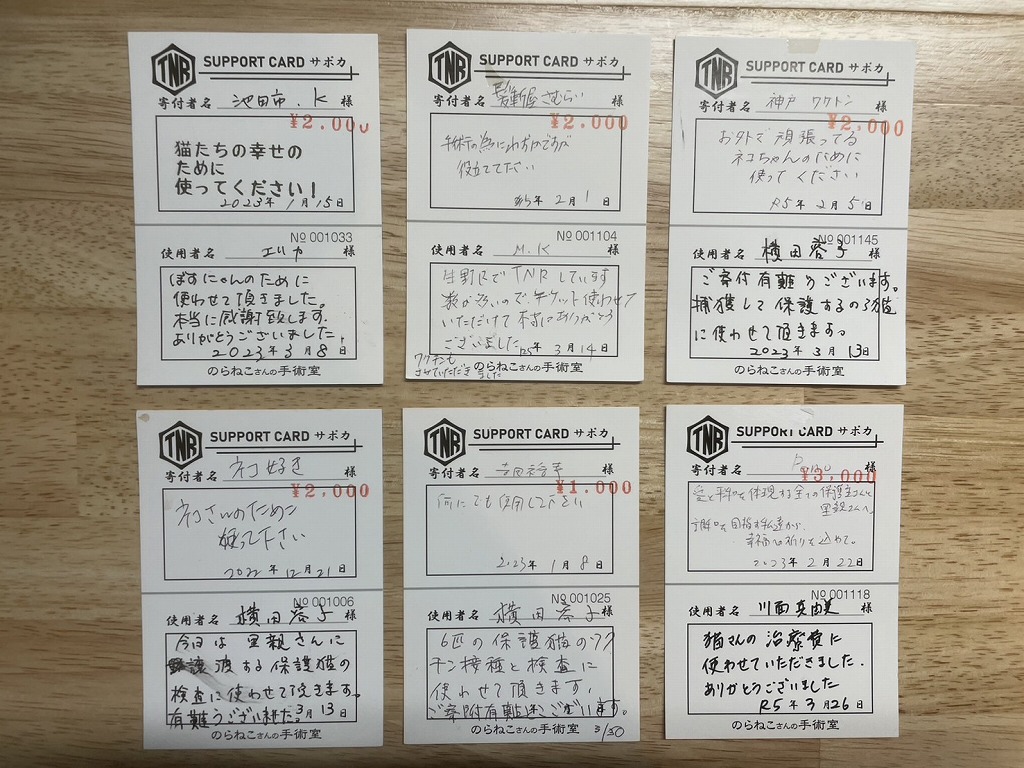 TNR SUPPORT CARD サポカ
寄付者名 池田市.K 様
¥2,000
猫たちの幸せの
ために
使ってください!
2023年1月15日
No 001033
使用者名 エリカ
ぽすにゃんのために
使わせて頂きました。
本当に感謝致します。
ありがとうございました。
2023年3月8日
のらねこさんの手術室
TNR SUPPORT CARD サポカ
寄付者名 さむらい 様
¥2,000
手術の為にわずかですが
役立ててください
R5年2月1日
No 001104
使用者名 M.K
生野区でTNRしています
数が多いので、チケット使わせて
いただけて本当にありがとう
ございました
R5年3月14日
ワクチンも
させていただきました
のらねこさんの手術室
TNR SUPPORT CARD サポカ
寄付者名 神戸 ワクトン 様
¥2,000
お外で頑張ってる
ネコちゃんのために
使ってください
R5年2月5日
No 001145
使用者名 横田蓉子
ご寄付有難うございます。
捕獲して保護するのら猫
に使わせて頂きます。
2023年3月13日
のらねこさんの手術室
TNR SUPPORT CARD サポカ
寄付者名 ネコ好き 様
¥2,000
ネコさんのために
使って下さい
2022年12月21日
No 001006
使用者名 横田蓉子
今日は里親さんに
譲渡する保護猫の
検査に使わせて頂きます。
有難うございました。3月13日
のらねこさんの手術室
TNR SUPPORT CARD サポカ
寄付者名 様
¥1,000
何にでも使用して下さい
2023年1月8日
No 001025
使用者名 横田蓉子
6匹の保護猫のワク
チン接種と検査に
使わせて頂きます。
ご寄附有難うございます。
3/30
のらねこさんの手術室
TNR SUPPORT CARD サポカ
寄付者名 様
¥3,000
愛と平和を体現する全ての保護主さんと
里親さんへ
を目指す私達から
幸福への祈りを込めて。
2023年2月22日
No 001118
使用者名 川西真由美
猫さんの治療費に
使わせていただきました.
ありがとうございました
R5年3月26日
のらねこさんの手術室